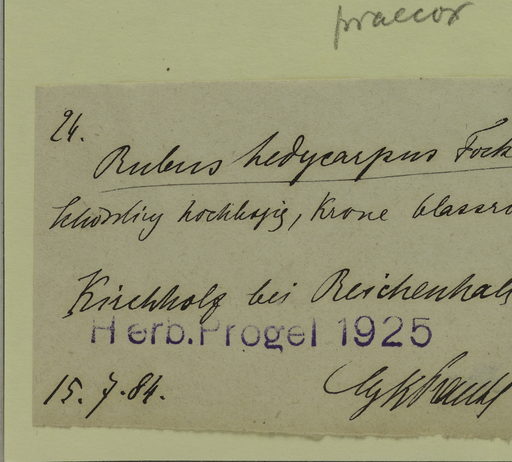 praecox
24.
Rubus hedycarpus Fock
Schössling hochbogig, Krone blassro
Kirchholz bei Reichenhall
Herb. Progel 1925
15. 7. 84.